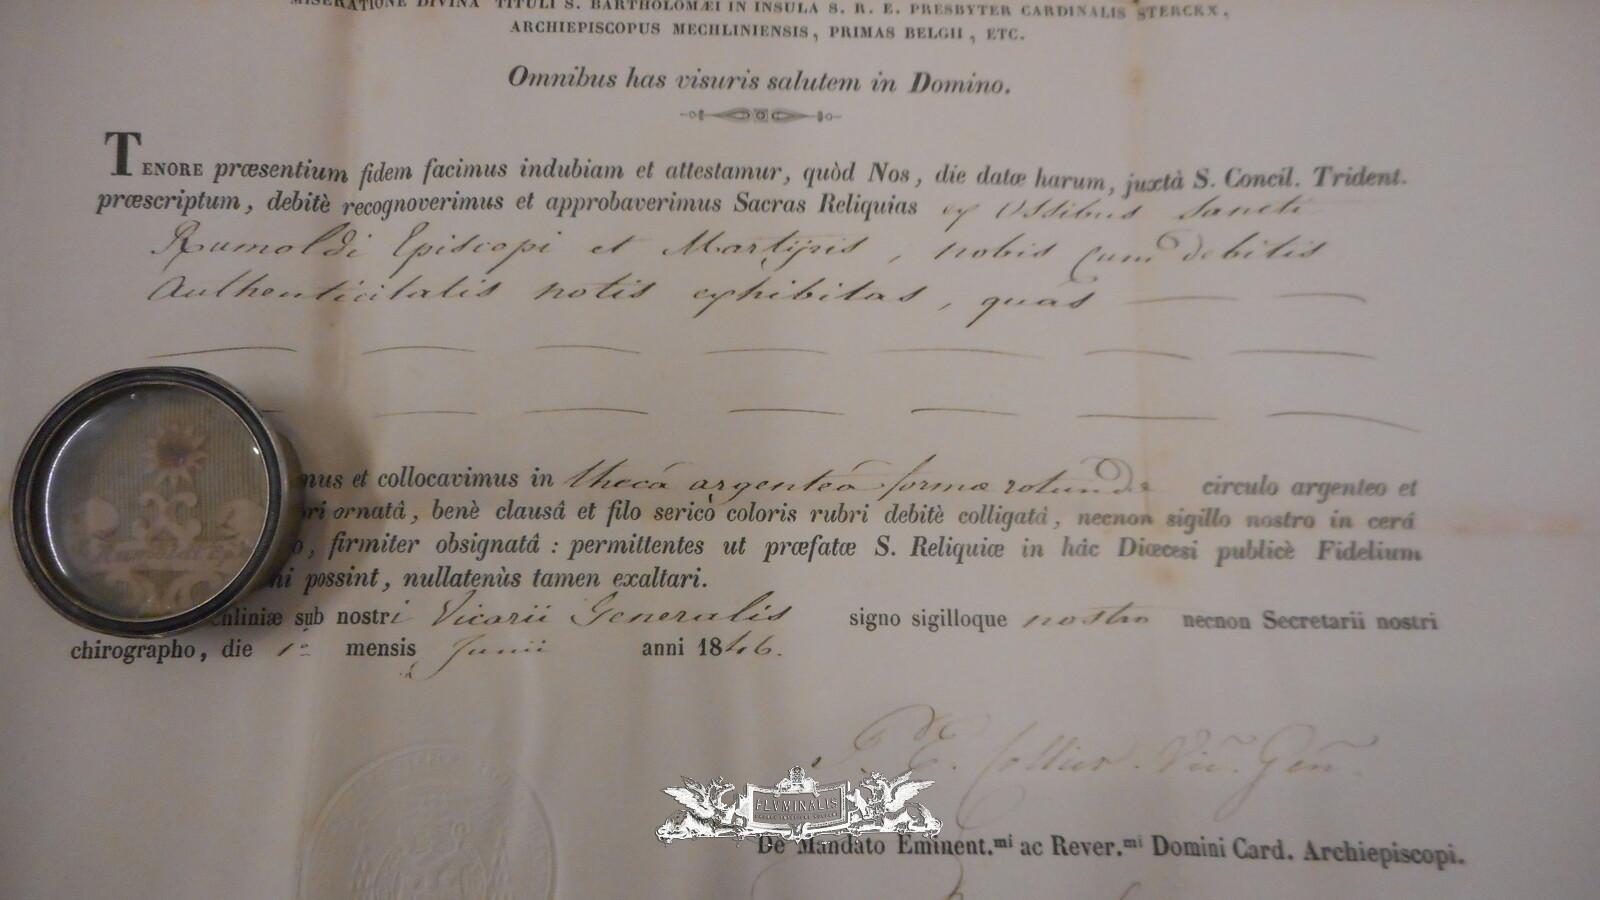 MISERATIONE DIVINA TITULI S. BARTHOLOMÆI IN INSULA S. R. E. PRESBYTER CARDINALIS STERCKX,
ARCHIEPISCOPUS MECHLINIENSIS, PRIMAS BELGII, ETC.
Omnibus has visuris salutem in Domino.
TENORE præsentium fidem facimus indubiam et attestamur, quòd Nos, die datæ harum, juxtà S. Concil. Trident.
præscriptum, debitè recognoverimus et approbaverimus Sacras Reliquias ex Ossibus Sancti
Rumoldi Episcopi et Martyris, nobis cum debitis
Authenticitatis notis exhibitas, quas
mus et collocavimus in thecâ argenteâ formæ rotundæ circulo argenteo et
ri ornatâ, benè clausâ et filo sericò coloris rubri debitè colligatâ, necnon sigillo nostro in cerâ
o, firmiter obsignatâ : permittentes ut præfatæ S. Reliquiæ in hâc Diœcesi publicè Fidelium
ni possint, nullatenùs tamen exaltari.
chliniæ sub nostri Vicarii Generalis signo sigilloque nostro necnon Secretarii nostri
chirographo, die 1ª mensis Junii anni 1846.
Collier. Vic. Gen.
FLVMINALIS
De Mandato Eminent.mi ac Rever.mi Domini Card. Archiepiscopi.